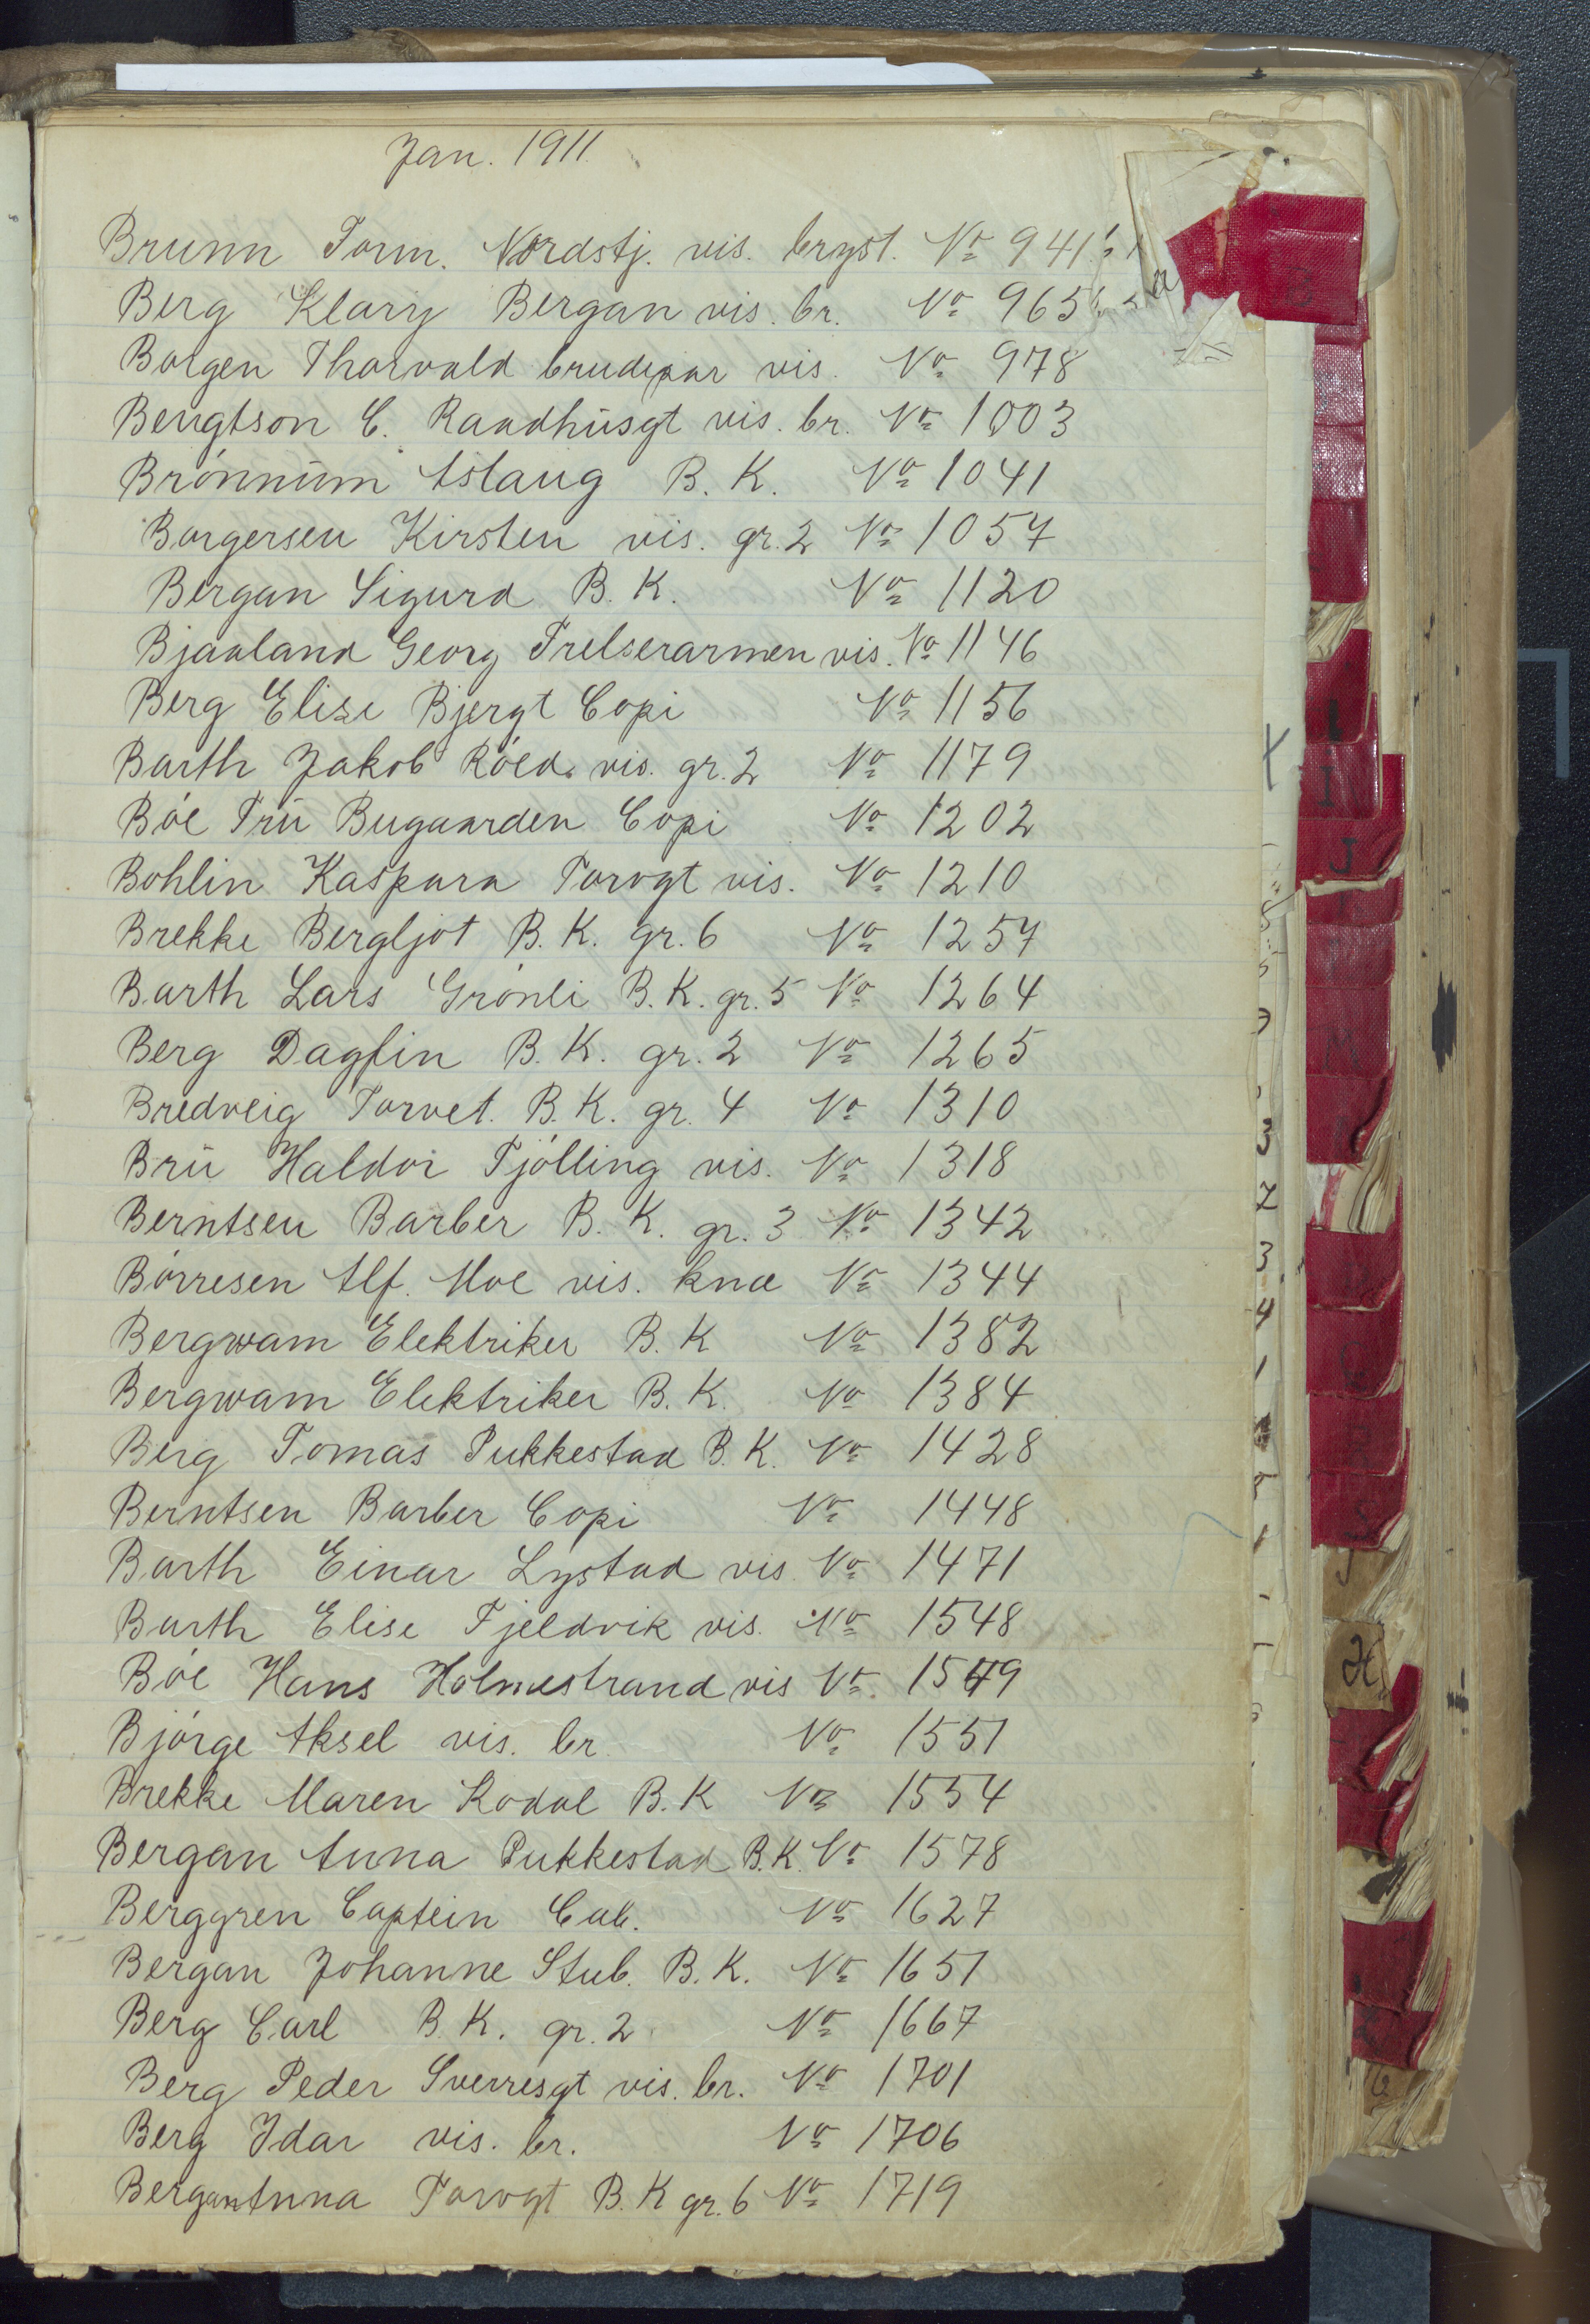 Jan. 1911.
Brunn Torm. Nordstj. vis. bryst. No 941
Berg Klary Bergan vis. br. No 965
Borgen Thorvald brudepar vis. No 978
Bengtson C. Raadhusgt vis. br. No 1003
Brönnum Aslaug B. K. No 1041
Borgersen Kirsten vis. gr. 2 No 1057
Bergan Sigurd B. K. No 1120
Bjaaland Georg Frelserarmen vis. No 1146
Berg Elise Bjergt Copi No 1156
Barth Jakob Röed. vis. gr. 2 No 1179
Böe Fru Bugaarden Copi No 1202
Bohlin Kaspara Torvgt vis. No 1210
Brekke Bergljot B. K. gr. 6 No 1257
Barth Lars Grönli B. K. gr. 5 No 1264
Berg Dagfin B. K. gr. 2 No 1265
Bredveig Torvet. B. K. gr. 4 No 1310
Bru Haldor Tjölling vis. No 1318
Berntsen Barber B. K. gr. 3 No 1342
Börresen Alf. Moe vis. knæ No 1344
Bergwam Elektriker B. K No 1382
Bergwam Elektriker B. K. No 1384
Berg Tomas Pukkestad B. K. No 1428
Berntsen Barber Copi No 1448
Barth Einar Lystad vis. No 1471
Barth Elise Fjeldvik vis. No 1548
Böe Hans Holmestrand vis No. 1549
Björge Aksel vis. br. No 1551
Brekke Maren Kodal B. K No 1554
Bergan Anna Pukkestad B. K. No 1578
Berggren Captein Cab. No 1627
Bergan Johanne Stub. B. K. No 1651
Berg Carl B. K. gr. 2 No 1667
Berg Peder Sverresgt vis. br. No 1701
Berg Idar vis. br. No 1706
Bergan Anna Torvgt B. K gr. 6 No 1719
B
I
J
M
H